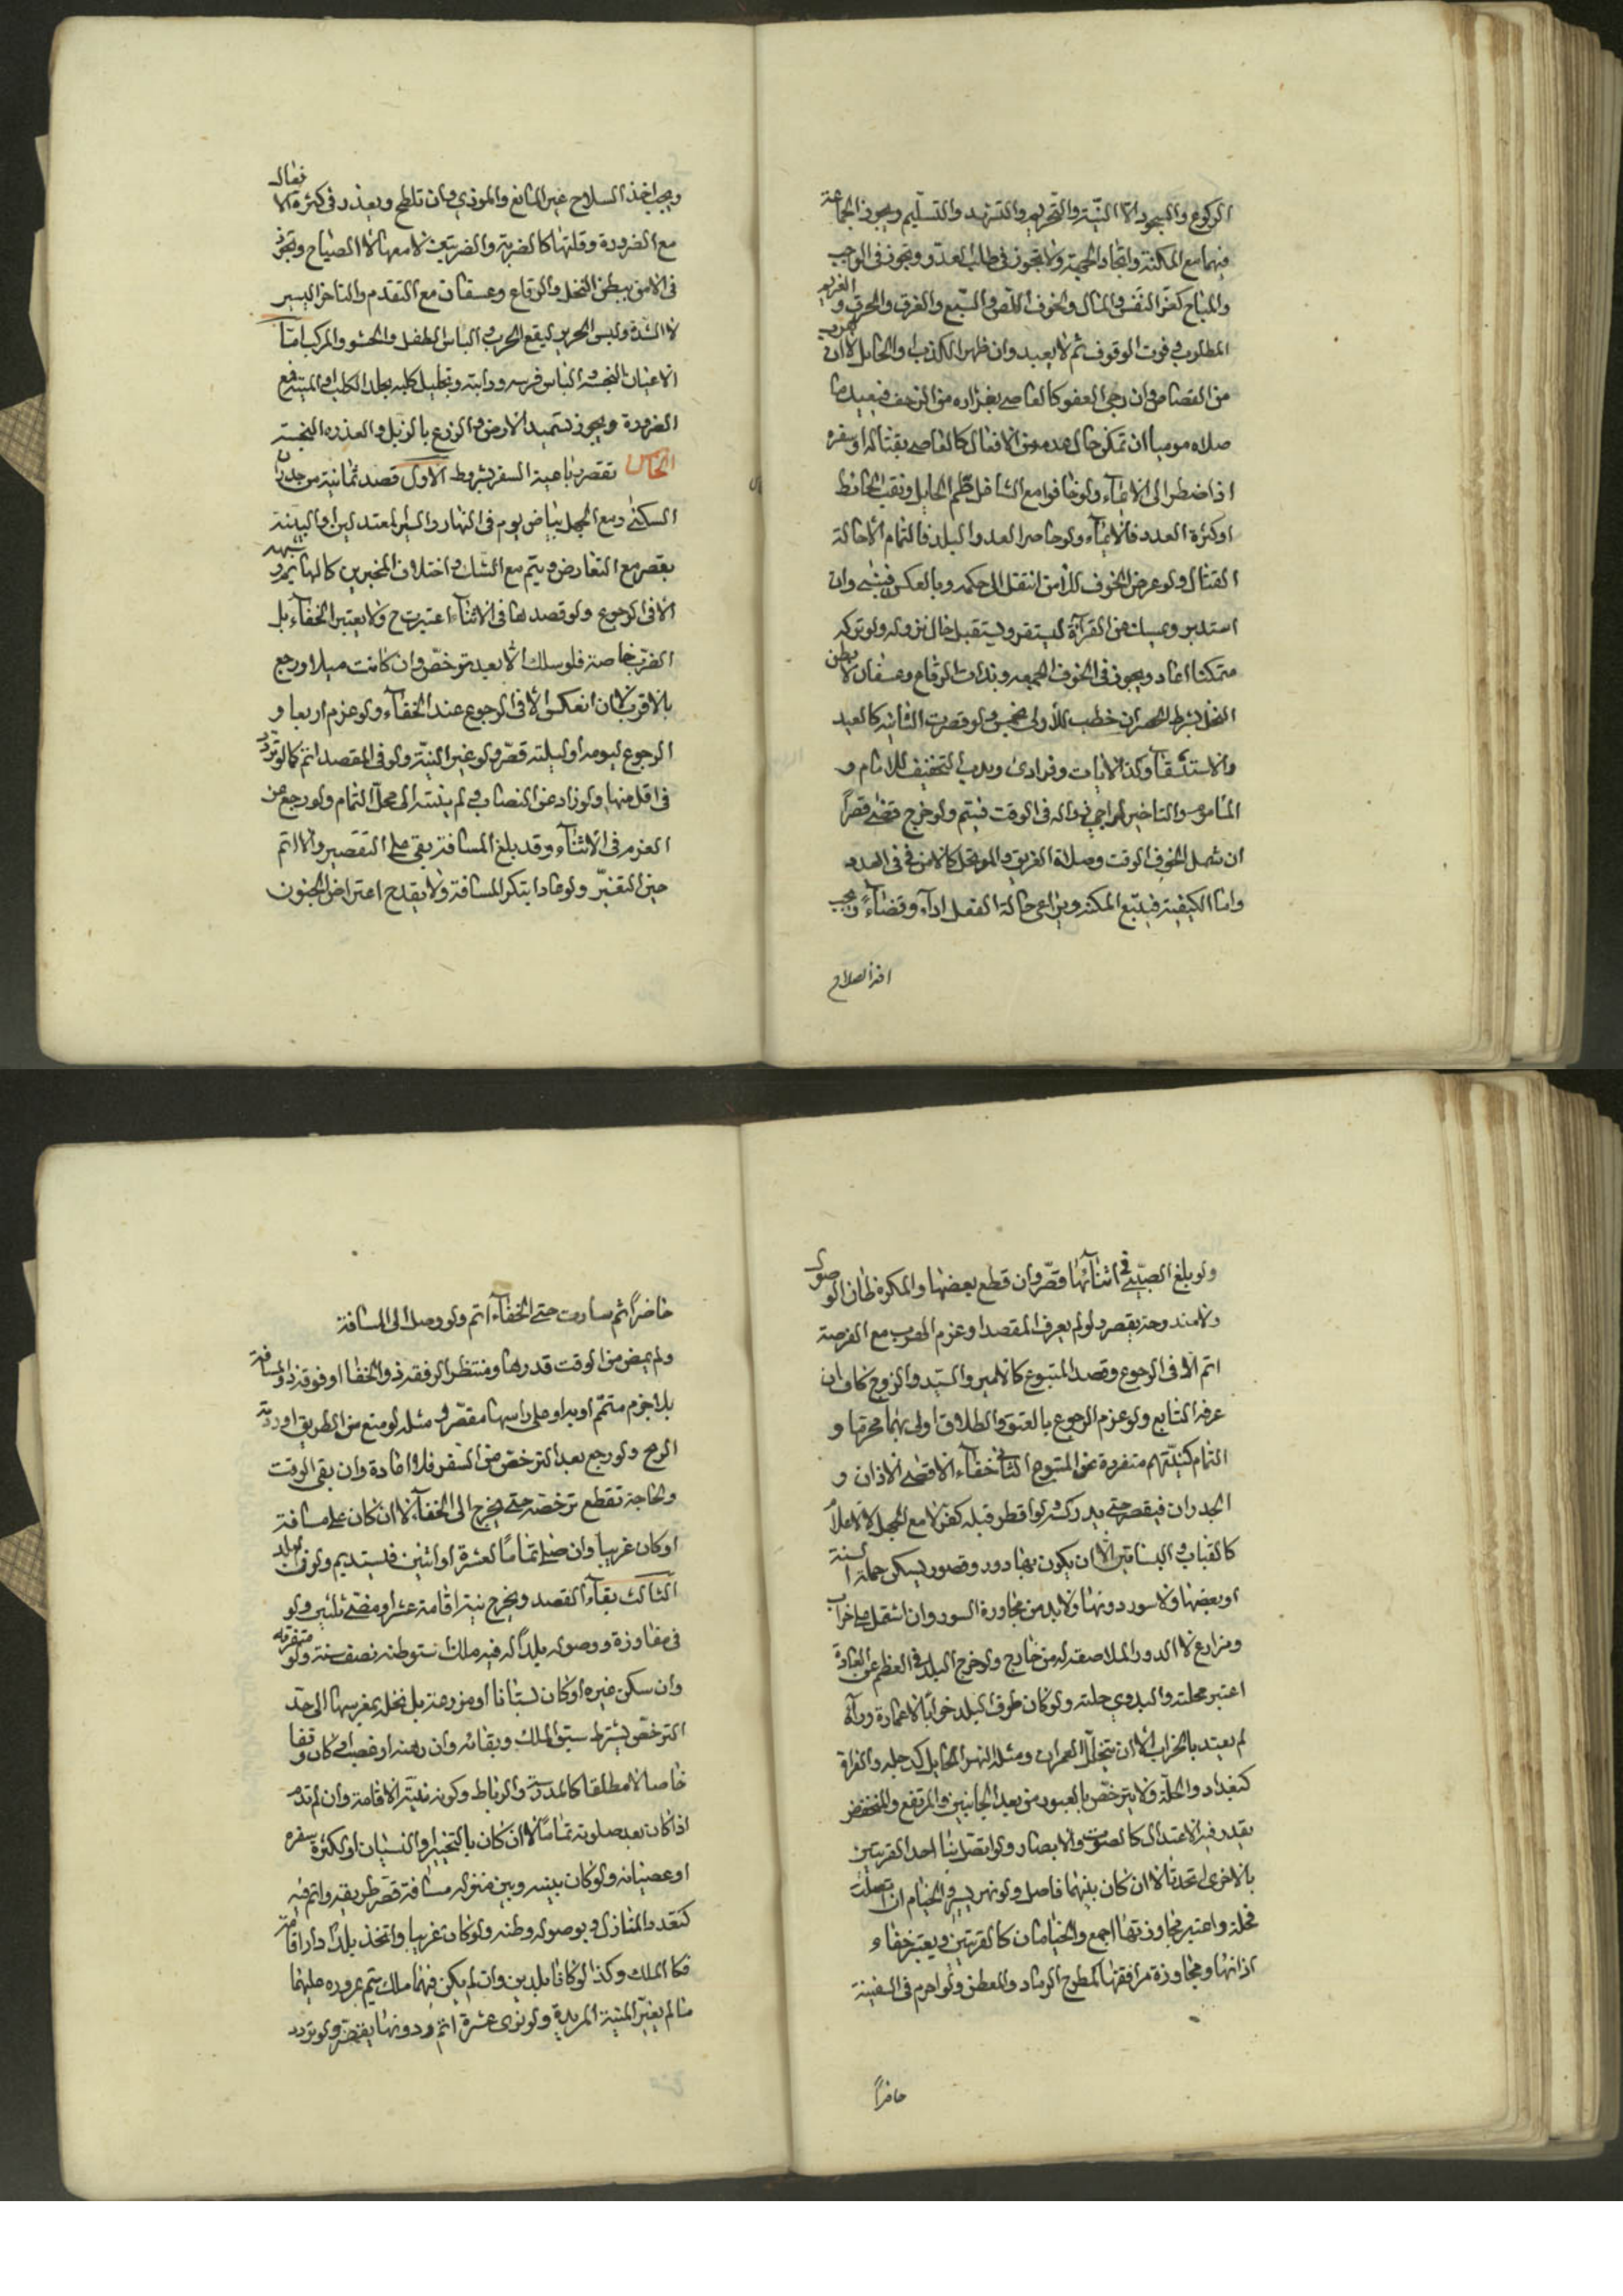 الركوع والسجود الا النيّة والتحريم والتشهد والتسليم ويجوز الجماعة
فيهما مع المكنة واتحاد الجهة ولا يجوز في طلب العدو ويجوز في الواجب
والمباح كعن النفس والمال والخوف اللص والسبع والغرق والحرق و الغريم
المطلوب في فوت الوقوف ثم لا يعيد وان ظهر الكذب او الحايل لا ان هرب
من القصاص وان رجى العفو كالعاصي بفراره من الزحف فيعيد
صلاه موميا ان تمكن حال من الافعال كالعاصي بقتاله او سفره
اذا اضطر الى الايماء ولو خافوا مع الشاغل كظلم الحايل ونقب الحائط
او كثرة العدد فالايماء ولو حاصر العدو البلد فالتمام الا حالة
القتال ولو عرض الخوف للآمن انتقل الى حكمه وبالعكس فيبني وان
استدبر ويمسك عن القرآءة ليستقر ويستقبل حال نزوله ولو تركه
متمكنا اعاد ويجوز في الخوف الجمعه وبذات الرقاع وعسفان لا بطن
النخل بشرط الحصر ان خطب للأولى ولو قصرت الثانيه كالعيد
والاستسقآء وكذا الايات وفرادى ويدب التخفيف للامام و
الماموم والتاخير لراجي زواله في الوقت فيتم ولو خرج قضى قصراً
ان شمل الخوف الوقت وصلاة الغريق والموتحل كالامن في العدد
واما الكيفية فيتبع المكنة ويراعى حالة الفعل ادآء وقضآءً ويجب
اخذ السلاح
ويجب اخذ السلاح غير المانع والموذي وان تلطخ ويعذر في كثرة الافعال
مع الضرورة وقلتها كالضربة والضربتين لا معها الا الصياح وتجوز
في الامن ببطن النخل والرقاع وعسفان مع التقدم والتاخر اليسير
لا الشدة ولبس الحرير ليقع الحرب والباس الطفل والحشو والمركب امّا
الاعيان النجسة والباس فرسه ودابته وتجليل كلبه بجلد الكلب والميتة فمع
الضرورة ويجوز تسميد الارض والزرع بالزبل والعذره النجسة
الخامس تقصر رباعية السفر بشروط الاول قصد ثمانية من جدران
السكنى ومع الجهل بياض يوم في النهار والسير المعتدلين او البينة
يقصر مع التعارض ويتم مع الشك واختلاف المخبرين كالهائم وشهر
الا في الرجوع ولو قصدها في الاثنآء اعتبرت ح ولا يعتبر الخفآء بل
الضرب خاصة فلو سلك الابعد ترخّص وان كانت ميلا ورجع
بالاقرب لا ان انعكس الا في الرجوع عند الخفآء ولو عزم اربعا و
الرجوع ليومه او ليلته قصّر ولو غير النيّة ولو في المقصد اتم كما لو تردّد
في اقل منها ولو زاد عن النصاب ولم ينته الى محلّ التمام ولو رجع عن
العزم في الاثنآء وقد بلغ المسافة بقى على التقصير والا اتم
حين التغيّر ولو عاد ابتكر المسافة ولا يقدح اعتراض الجنون
ولو بلغ الصبيّ في اثنآئها قصّر وان قطع بعضها والمكره ظان الوصول
ولا مندوحة يقصر ولو لم يعرف المقصد او عزم الهرب مع الفرصة
اتم الا في الرجوع وقصد المتبوع كالامير والسيد والزوج كاف ان
عرفه التابع ولو عزم الرجوع بالعتق والطلاق اولى بهما محرمها و
التمام كنيّتهم منفردة عن المتبوع الثاني خفآء الاقصى الاذان و
الجدران فيقصر حتى يدركه ولو افطر قبله كفر لا مع الجهل لا الاعلام
كالقباب والبساتين الا ان يكون بها دور وقصور يسكن جملة السنة
او بعضها ولا سور دونها ولا بد من مجاورة السور وان اشتمل على خراب
ومزارع لا الدور الملاصقه له من خارج ولو خرج البلد في العظم عن العادة
اعتبر محلته والبدوي حلته ولو كان طرف البلد خرابًا لا عمارة ورآه
لم يعتد بالخراب الا ان يتخلل العمران ومثله النهر الحايل كدجله والفرات
كبغداد والحلّة ولا يترخّص بالعبور من بعيد الجانبين والمرتفع والمنخفض
يقدر فيه الاعتدال كالصوت والابصار ولو اتصل بنا احد القريتين
بالاخرى اتحدتا لا ان كان بينهما فاصل ولو نهر يسير والخيام ان اتصلت
فحلة واعتبر مجاوزتها اجمع والخيامان كالقريتين ويعتبر خفاء
اذانها ومجاوزة مرافقها كمطرح الرماد والمعطن ولو احرم في السفينة
حاضراً
حاضراً ثم سارت حتى الخفآء اتم ولو وصل الى المسافة
ولم يمض من الوقت قدرها ومنتظر الرفقه ذو الخفا او فوقه ذو المسافة
بلا جزم متمّم او بدا وعلى راسها مقصّر ومثله لو منع من الطريق او ردته
الريح ولو رجع بعد الترخّص من السفر فلا اعادة وان بقى الوقت
ولحاجة تقطع ترخّصه حتى يخرج الى الخفآء لا ان كان على مسافة
او كان غريبا وان صلى تمامًا لعشرة او اثنين فليستديم ولو في البلد
الثالث بقآء القصد ويخرج بنية اقامة عشر او مضى ثلثين ولو
في مفاوزة ووصوله بلداً له فيه ملك استوطنه نصف سنة ولو متفرقه
وان سكن غيره او كان بستانا او مزرعة بل نخله بمغرسها الى حد
الترخّص بشرط سبق الملك وبقائه وان رهنه او غصب او كان وقفا
خاصا لا مطلقا كالمدرسة والرباط وكونه بنيّة الاقامة وان لم تدم
اذا كان بعد صلوته تمامًا لا ان كان بالتخيير او النسيان او لكثرة سفره
او عصيانه ولو كان بينه وبين منزله مسافة قصّر طريقه واتم فيه
كتعدد المنازل وبوصوله وطنه ولو كان غريبا واتخذ بلداً دار اقامة
فكالملك وكذا لو كانا بلدين وان لم يكن فيهما ملك يتم بمروره عليهما
ما لم يغيّر النية المريدة ولو نوى عشرة اتم ودونها يقصّر ولو تردد